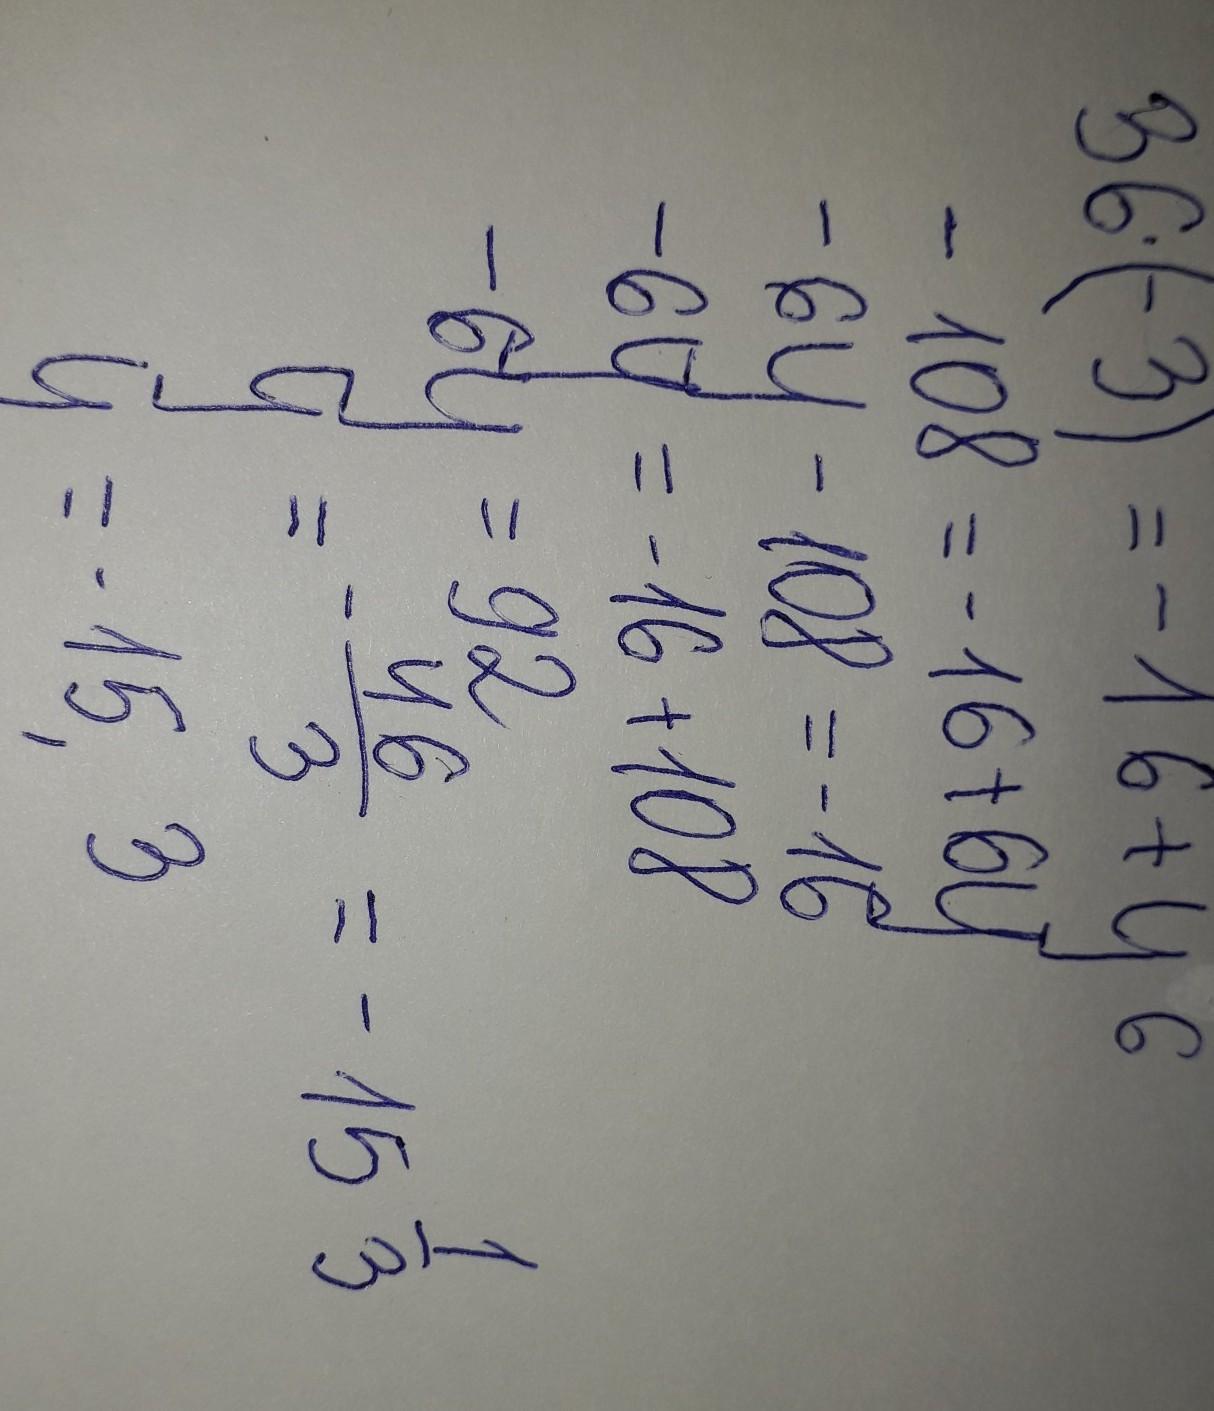 36·(-3) = -16+y6
-108 = -16+6y
-6y - 108 = -16
-6y = -16+108
-6y = 92
y = -46/3 = -15 1/3
y = -15,3